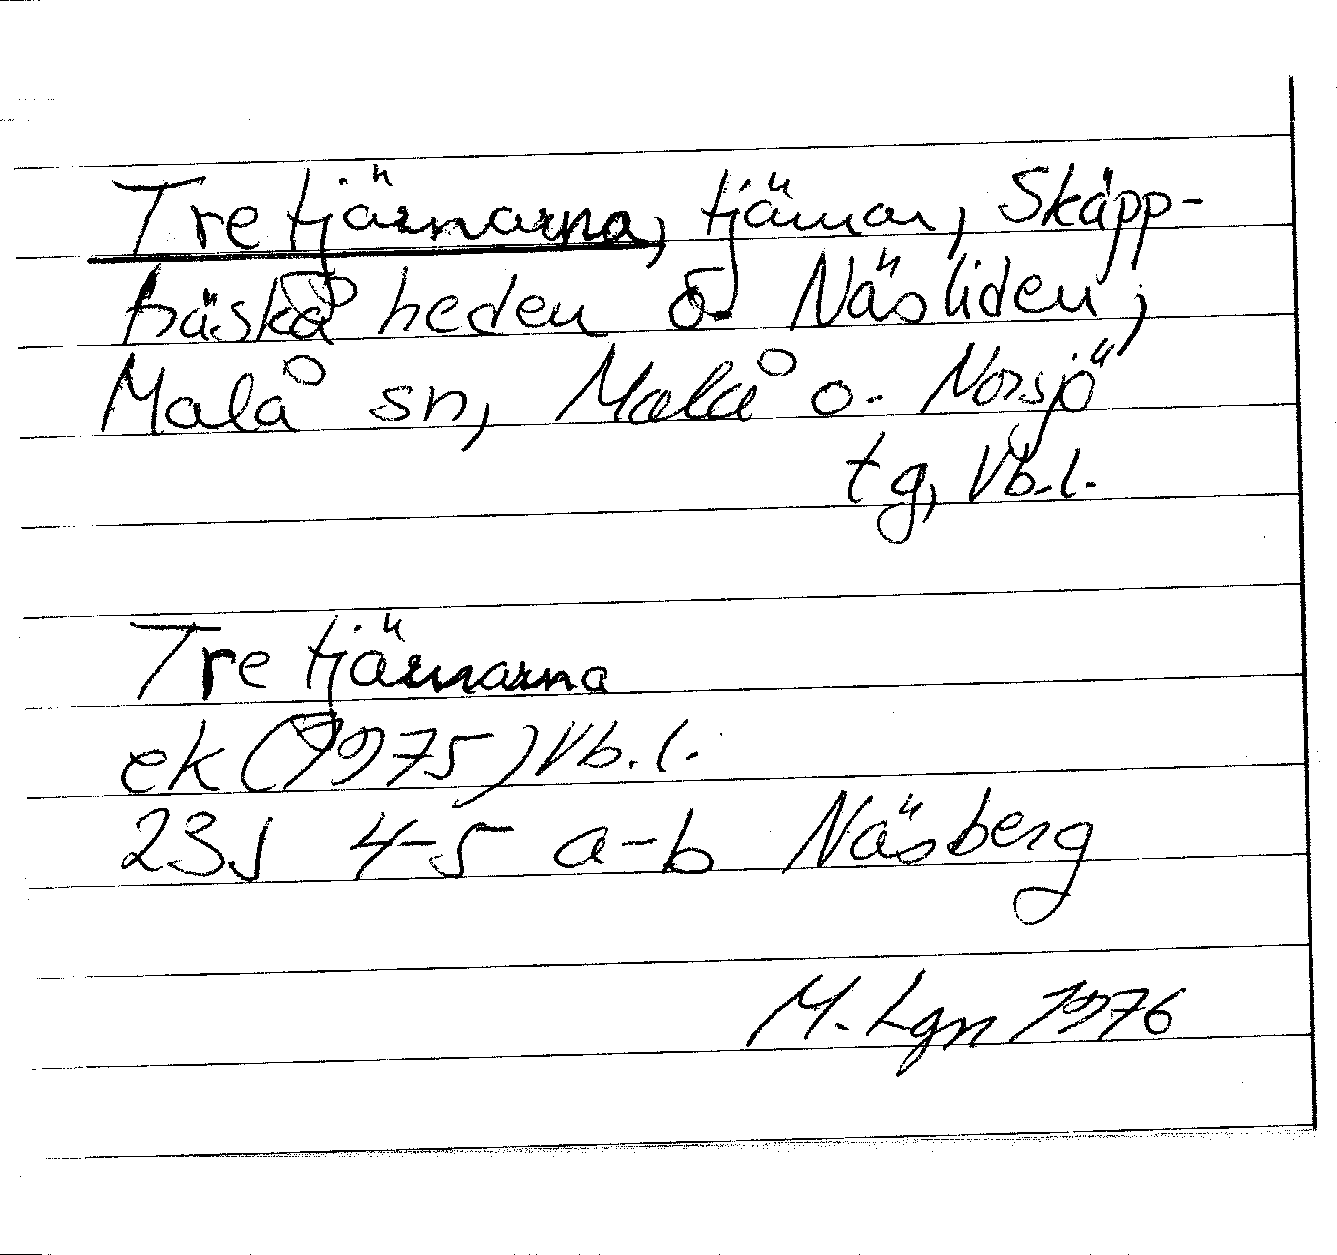 Tretjärnarna, tjärnar, Skäpp-
träskåheden ö. Näsliden,
Malå sn, Malå o. Norsjö
tg, Vb.l.
Tretjärnarna
ek (1975) Vb.l.
23J 4-5 a-b Näsberg
M. Lgn 1976